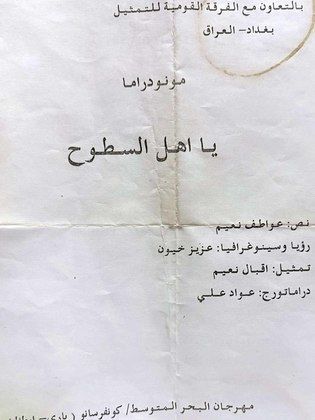 بالتعاون مع الفرقة القومية للتمثيل
بغداد- العراق
مونودراما
يا اهل السطوح
نص: عواطف نعيم
رؤيا وسينوغرافيا: عزيز خيون
تمثيل: اقبال نعيم
دراماتورج: عواد علي
مهرجان البحر المتوسط/ كونفرسانو ( باري-